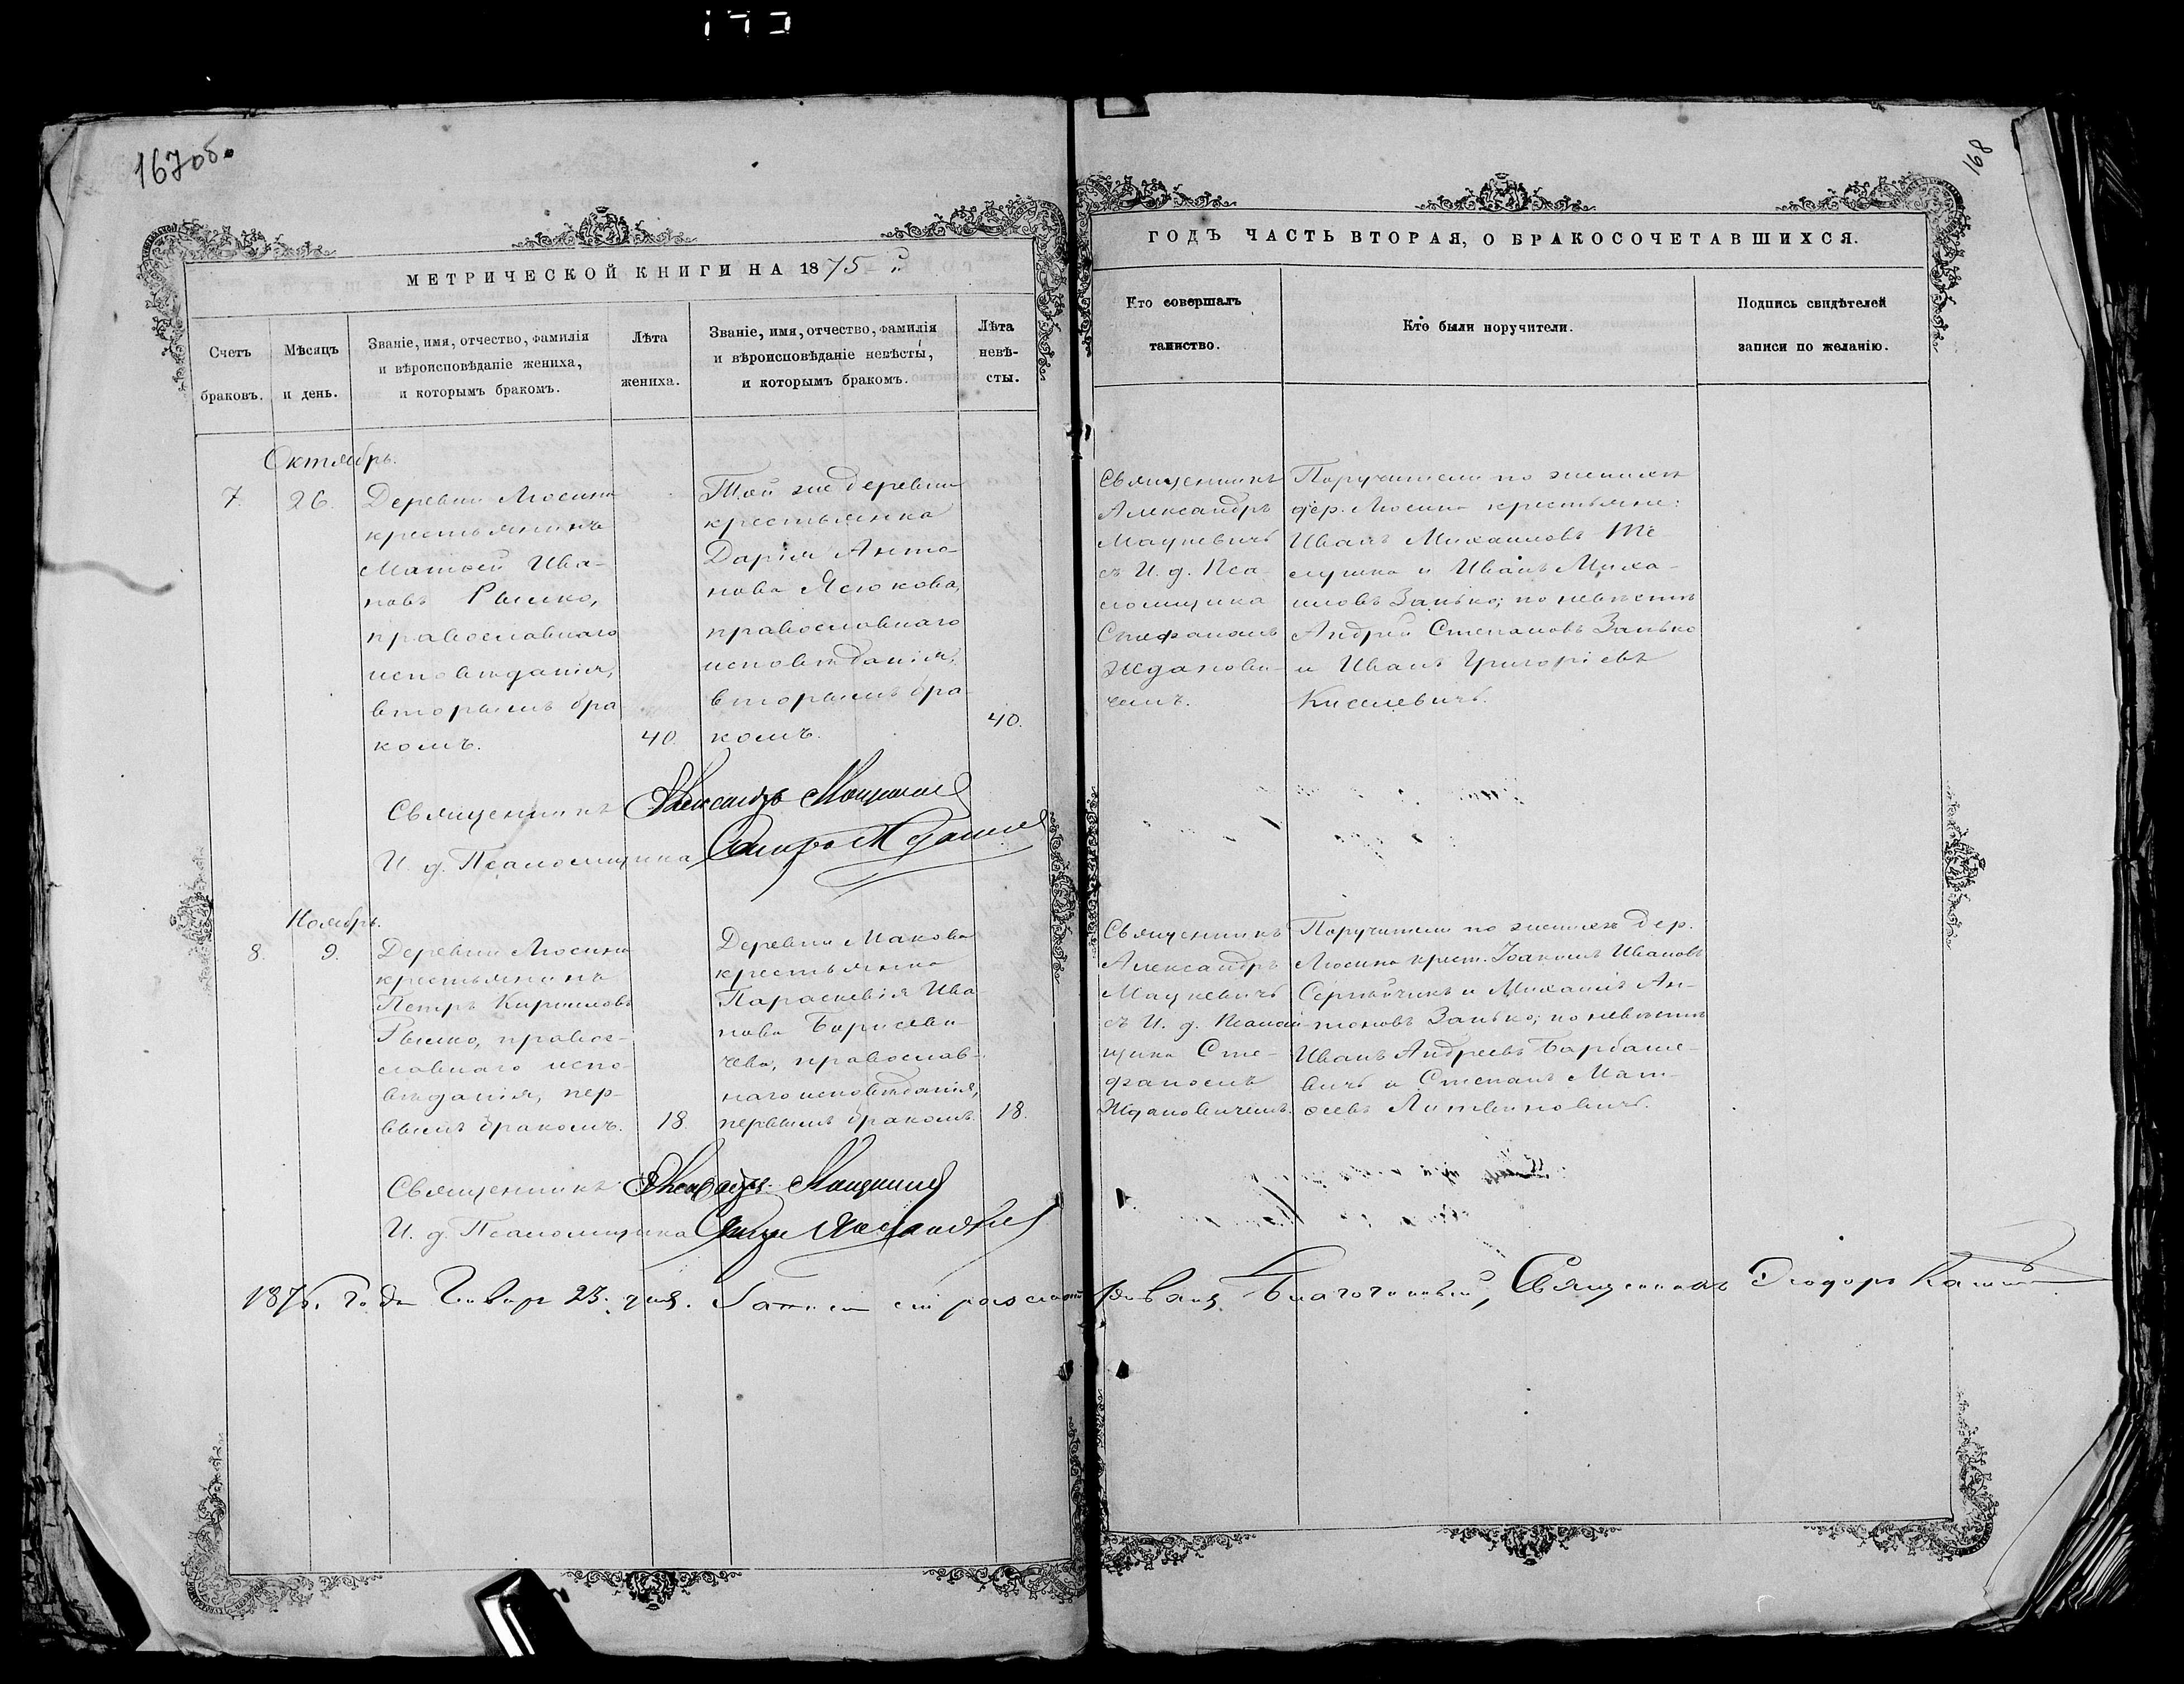 167об.
168
МЕТРИЧЕСКОЙ КНИГИ НА 1875 й
ГОДЪ ЧАСТЬ ВТОРАЯ, О БРАКОСОЧЕТАВШИХСЯ.
Счетъ
браковъ.
Мѣсяцъ
и день.
Званіе, имя, отчество, фамилія
и вѣроисповѣданіе жениха,
и которымъ бракомъ.
Лѣта
жениха.
Званіе, имя, отчество, фамилія
и вѣроисповѣданіе невѣсты,
и которымъ бракомъ.
Лѣта
невѣ-
сты.
Кто совершалъ
таинство.
Кто были поручители.
Подпись свидѣтелей
записи по желанію.
Октябрь.
7.
26.
Деревни Люсина
крестьянинъ
Матѳей Ива-
новъ Рышко,
православнаго
исповѣданія,
вторымъ бра
комъ.
40.
Той же деревни
крестьянка
Дарія Анто-
нова Ясюкова,
православнаго
исповѣданія,
вторымъ бра-
комъ.
40.
Священникъ
Александръ
Мацкевичъ
съ И. д. Пса-
ломщика
Стефаномъ
Жданови-
чемъ.
Поручители по женихѣ
дер. Люсина крестьяне:
Иванъ Михаиловъ
и Иванъ Миха-
иловъ Занько; по невѣстѣ
Андрей Степановъ Занько
и Иванъ Григоріевъ
Киселевичъ.
Священникъ Александръ Мацкевичъ
И. д. Псаломщика
Ноябрь.
8.
9.
Деревни Люсина
крестьянинъ
Петръ Кирилловъ
Рышко, правос-
лавнаго испо-
вѣданія, пер-
вымъ бракомъ.
18.
Деревни Макова
крестьянка
Параскевія Ива-
нова Борисеви-
чева, православ-
наго исповѣданія,
первымъ бракомъ.
18.
Священникъ
Александръ
Мацкевичъ
съ И. д. Псалом-
щика Сте-
фаномъ
Ждановичемъ.
Поручители по женихѣ дер.
Люсина крест. Іоакимъ Ивановъ
Сергѣйчикъ и Михаилъ Ан-
тоновъ Занько; по невѣстѣ
Иванъ Андреевъ Барбаше-
вичъ и Степанъ Мат-
ѳеевъ Литвиновичъ.
Священникъ Александръ Мацкевичъ
И. д. Псаломщика
1876. года Января 23. дня. Записи сіи разсматривалъ Благочинный, Священникъ Ѳеодоръ